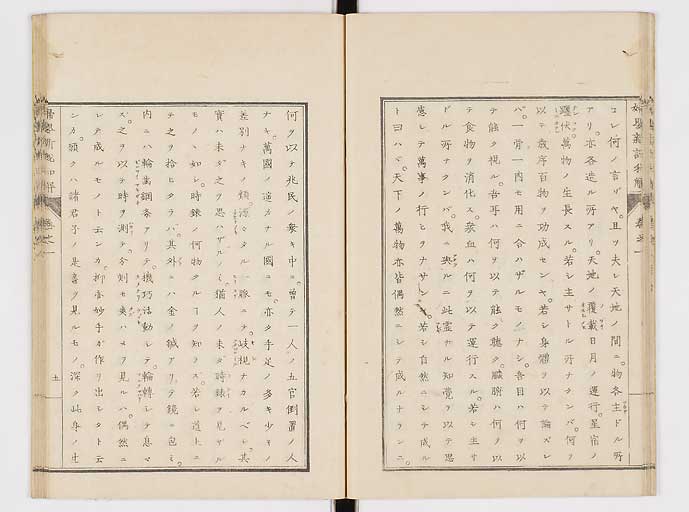 コレ何ノ言ゾヤ。且ツ夫レ天地ノ間ニ。物各主ドル所
アリ。亦各造ル所アリ。天地ノ覆載日月ノ運行。星宿ノ
躔伏萬物ノ生長スル。若シ主サトル所ナクンバ。何ヲ
以テ歳序百物ヲ功成センヤ。若シ身體ヲ以テ論ズレ
バ。一骨一肉モ用ニ合ハザルモノナシ。吾目ハ何ヲ以
テ能ク視ル。吾耳ハ何ヲ以テ能ク聽ク。臓腑ハ何ヲ以
テ食物ヲ消化ス。榮血ハ何ヲ以テ運行スル。若シ主サ
ドル所ナクンバ。我ニ與ルニ此霊ナル知覺ヲ以テ思
慮シテ萬事ノ行ヒヲナサン。若シ自然ニシテ成ル
ト曰ハヾ。天下ノ萬物亦皆偶然ニシテ成ルナランニ。
何ヲ以テ兆民ノ衆キ中ニ。曽テ一人ノ五官倒置ノ人
ナキ。萬國ノ遠カナル國ニモ。亦タ手足ノ多キ少キノ
差別ナキノ類。源々タル一脉ニテ。岐視ナカルベシ。其
實ハ未ダ之ヲ思ハザルノミ。猶人ノ未ダ時錶ヲ見ザル
モノヽ如シ。時錶ノ何物タルヿヲ知ラズ。若シ道上ニ
テ之ヲ拾ヒタラバ。其外ニハ金ノ鍼アリテ鏡ニ包ミ。
内ニハ輪齒鋼条アリテ。機巧活動シテ。輪轉シテ息マ
ズ。之ヲ以テ時ヲ測テ。分刻モ爽ハヌヲ見ルハ。偶然ニ
シテ成ルモノト云ンカ。抑亦妙手ガ作リ出シタト云
ンカ。願クハ諸君子ノ是書ヲ見ルモノ。深ク此身ノ生
五